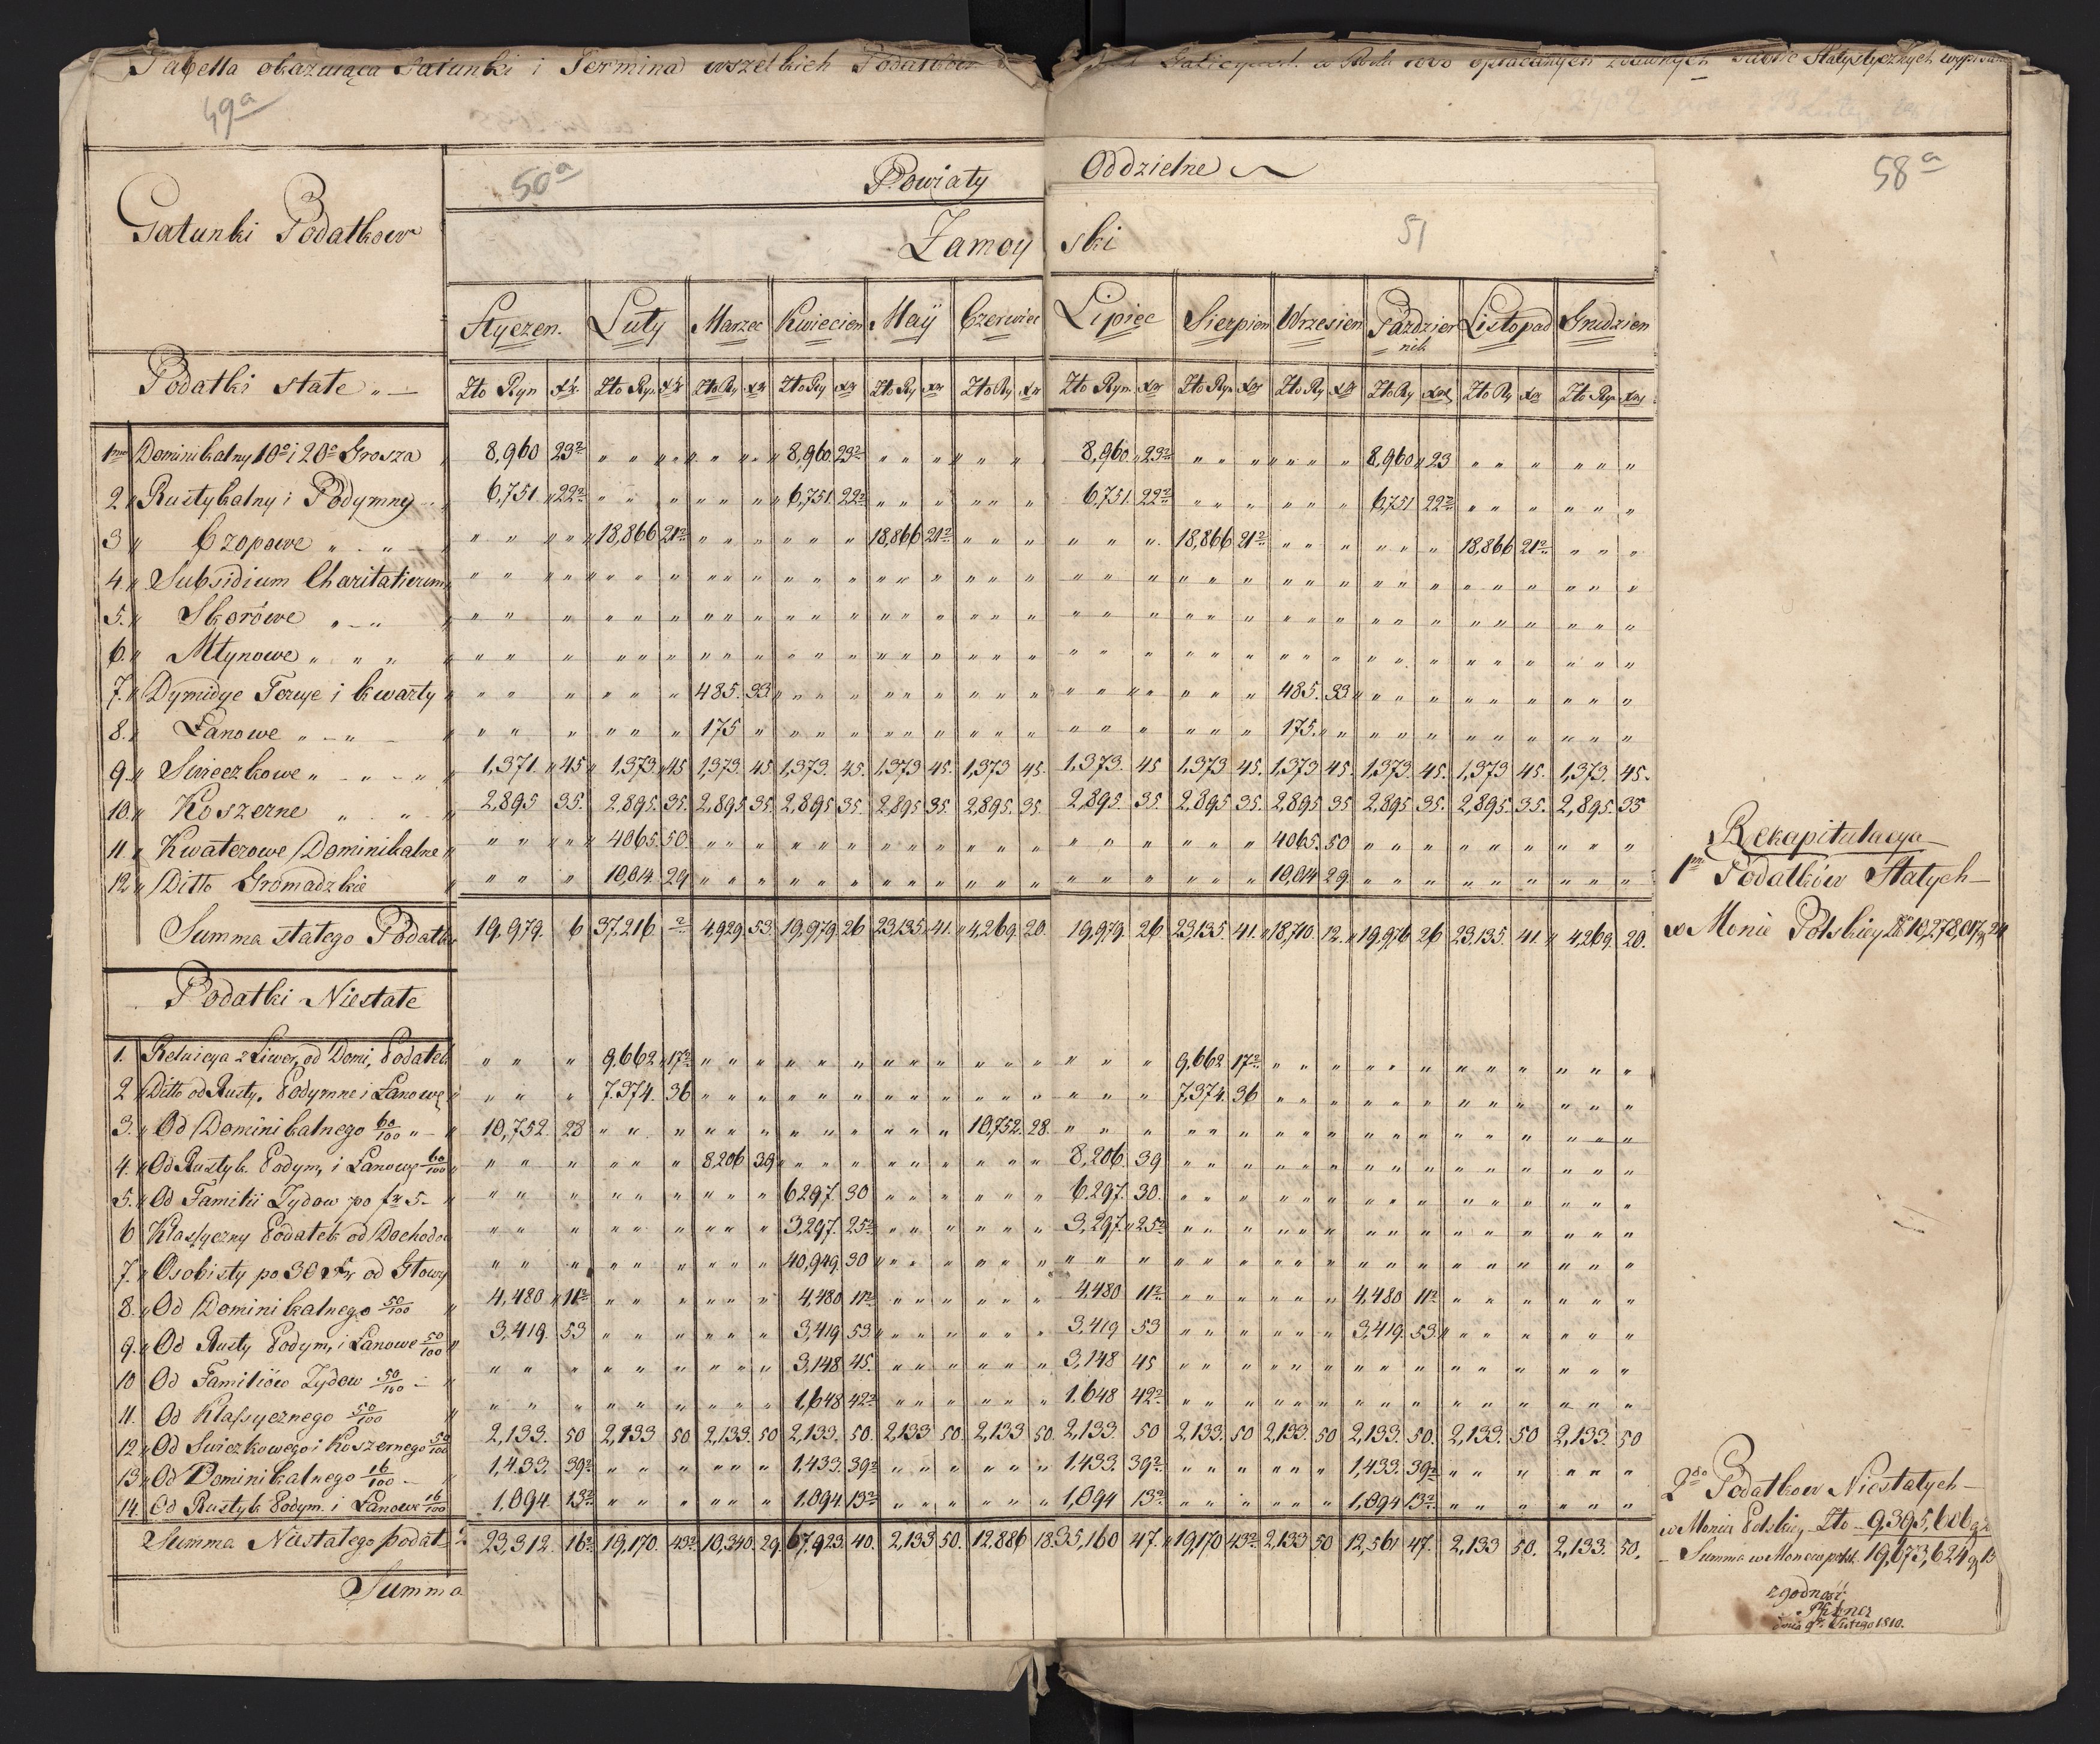 Tabella okazuiąca Gatunki i Termina wszelkich Podatkow Galicyach w Roku opłacanych z dawnych Statystycznych
49a
50a Powiaty Oddzielne
58a
Gatunki Podatkow
Zamoyski
51
Styczen. Luty Marzec Kwiecien Maÿ Czerwiec Lipiec Sierpien Wrzesien Pazdziernik Listopad Grudzien
Podatki stałe „ —
Zło Ryn Xr Zło Ryn Xr Zło Ry Xr Zło Ry Xr Zło Ry Xr Zło Ry Xr Zło Ryn Xr Zło Ryn Xr Zło Ry Xr Zło Ry Xr Zło Ry Xr Zło Ryn Xr
1mo Dominikalny 10o i 20o Grosza 8,960 23 2 8,960 23 2 8,960 23 2 8,960 23
2 Rustykalny i Podymny 6,751 22 2 6,751 22 2 6,751 22 2 6,751 22 2
3 Czopowe 18,866 21 2 18,866 21 2 18,866 21 2 18,866 21 2
4 Subsidium Charitativum
5. Skorówe
6. Młynowe
7. Dymidye Tercye i kwarty 485. 33 485. 33
8. Łanowe 175 175
9 Swieczkowe 1,371. 45 1,373 45 1,373. 45 1,373. 45. 1,373 45. 1,373 45. 1,373. 45 1,373 45. 1,373 45. 1,373 45. 1,373 45. 1,373. 45.
10. Koszerne 2,895 35. 2,895. 35. 2,895 35 2,895 35. 2,895 35. 2,895. 35. 2,895. 35. 2,895 35. 2,895 35 2,895 35. 2,895. 35. 2,895. 35
11. Kwaterowe Dominikalne 4065. 50 4065. 50
12 Ditto Gromadzkie 10,014. 29 10,014 29
Summa stałego Podatku 19,979. 6 37,216 2 4,929 53 19,979 26 23,135 41. 4,269. 20. 19,979. 26 23,135. 41. 18,710. 12. 19,976 26 23.135. 41. 4,269. 20.
Rekapitulacya
1mo Podatków Stałych —
w Monie Polskiey Zło 10,278,017 g 24
Podatki Niestałe
1. Reluicya z Liwer, od Domi, Podatek 9,662 17 2 9,662 17 2
2 Ditto od Rusty. Podymne i Łanowe 7.374. 36 7,374. 36
3. Od Dominikalnego 60/100 10,752. 28 10,752. 28.
4. Od Rustyk. Podym, i Łanowe 60/100 8,206 39 8,206. 39
5. Od Familii Zydow po fr 5 — 6297. 30 6,297. 30.
6 Klassyczny Podatek od Dochodow 3,297. 25 2 3,297. 25 2
7. Osobisty po 30 Xr od Głowy 40,949. 30
8. Od Dominikalnego 50/100 4,480 11 2 4,480 11 2 4,480 11 2 4,480 11 2
9. Od Rusty Podym, i Łanowe 50/100 3,419. 53 3,419 53 3,419 53 3,419. 53.
10 Od Familiów Zydow 50/100 3,148 45. 3,148 45
11. Od Klassycznego 50/100 1,648 42 2 1,648 42 2
12 Od Swiczkowego i Koszernego 50/100 2,133. 50 2,133 50 2,133. 50 2,133. 50. 2,133 50. 2,133 50. 2,133. 50 2,133. 50 2,133. 50 2,133. 50. 2,133. 50 2,133. 50
13 Od Dominikalnego 16/100 1,433. 39 2 1,433. 39 2 1433. 39 2 1,433. 39 2
14. Od Rustyk Podym. i Łanowe 16/100 1,094. 13 2 1,094 13 2 1,094 13 2 1,094 13 2
Summa Niestałego podat 23,312. 16 2 19,170. 43 2 10,340. 29 67,923 40. 2,133 50. 12,886 18. 35,160 47. 19,170 43 2 2,133 50 12,561 47. 2,133 50. 2,133. 50.
Summa
2do Podatkow Niestałych —
w Monie Polskiey Zło 9,395,606 g
Summa w Monow polsk. 19,673,624 g 15
zgodność
dnia 9go Lutego 1810.